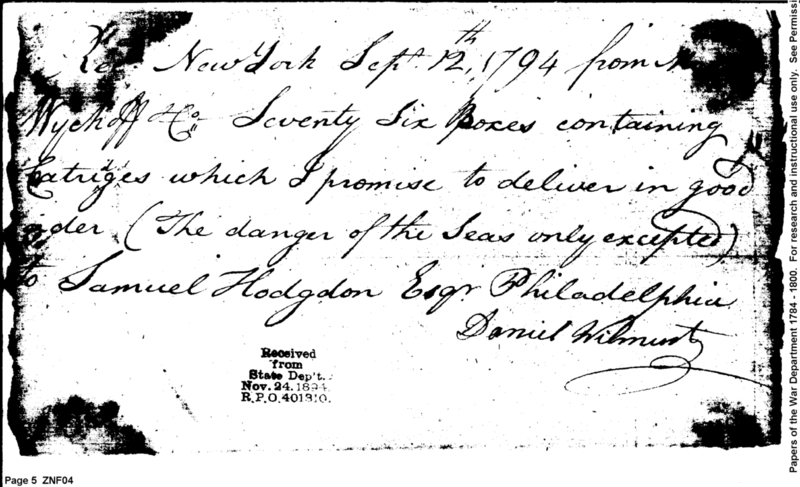 New York Sept. 12th, 1794 from
Wyckoff & Co. Seventy Six Boxes containing
Catridges which I promise to deliver in good
order (The danger of the Seas only excepted)
to Samuel Hodgdon Esqr. Philadelphia
Daniel
Received
from
State Dep't.
Nov. 24. 1894
R.P.O. 401310.
Page 5 ZNF04
Papers of the War Department 1784 - 1800. For research and instructional use only. See Permissi